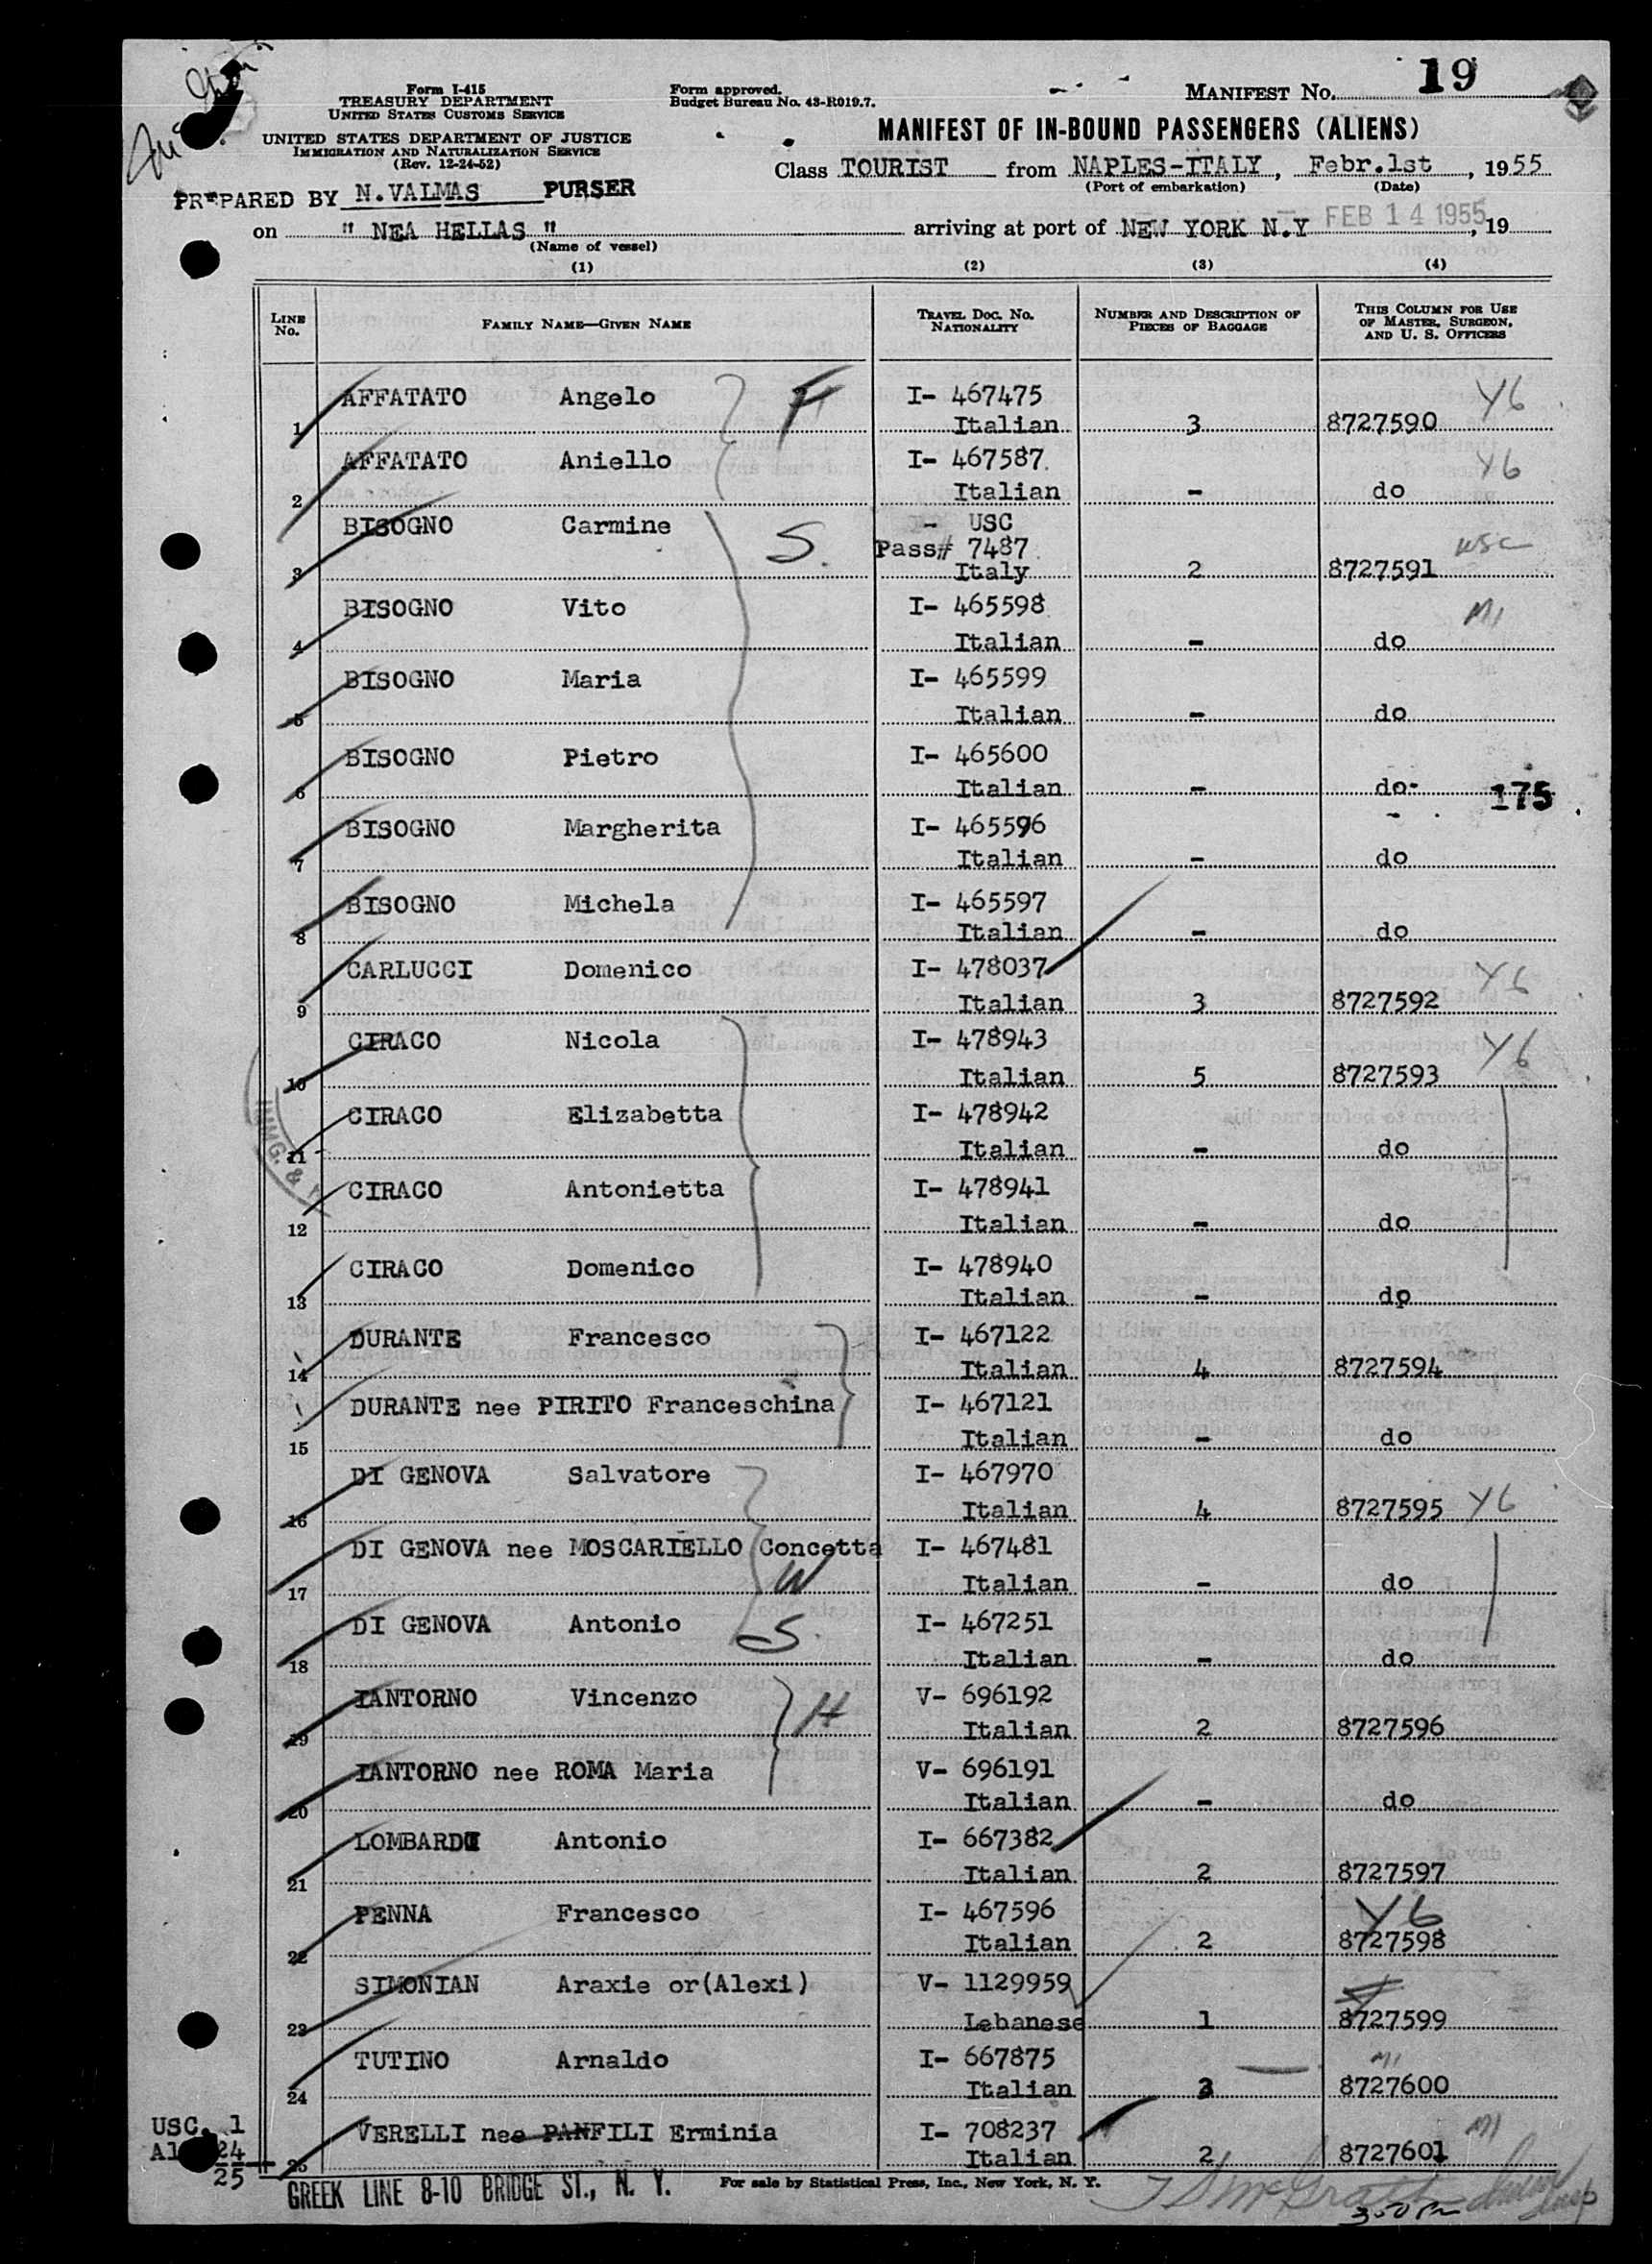 19
Form I-415
TREASURY DEPARTMENT
UNITED STATES CUSTOMS SERVICE
Form approved.
Budget Bureau No. 43-R019.7.
MANIFEST NO.
UNITED STATES DEPARTMENT OF JUSTICE
IMMIGRATION AND NATURALIZATION SERVICE
(Rev. 12-24-52)
MANIFEST OF IN-BOUND PASSENGERS (ALIENS)
Class TOURIST from NAPLES-ITALY, Febr.1st, 1955
(Port of embarkation) (Date)
PREPARED BY N.VALMAS PURSER
on " NEA HELLAS " arriving at port of NEW YORK N.Y FEB 14 1955, 19
(Name of vessel)
(1) (2) (3) (4)
LINE NO. FAMILY NAME—GIVEN NAME TRAVEL DOC. NO. NATIONALITY NUMBER AND DESCRIPTION OF PIECES OF BAGGAGE THIS COLUMN FOR USE OF MASTER, SURGEON, AND U. S. OFFICERS
AFFATATO Angelo I- 467475 Y6
1 Italian 3 8727590
AFFATATO Aniello I- 467587 Y6
2 Italian - do
BISOGNO Carmine S. - USC
Pass# 7487 USC
3 Italy 2 8727591
BISOGNO Vito I- 465598 M1
4 Italian - do
BISOGNO Maria I- 465599
5 Italian - do
BISOGNO Pietro I- 465600
6 Italian - do 175
BISOGNO Margherita I- 465596
7 Italian - do
BISOGNO Michela I- 465597
8 Italian - do
CARLUCCI Domenico I- 478037 Y6
9 Italian 3 8727592
CIRACO Nicola I- 478943 Y6
10 Italian 5 8727593
CIRACO Elizabetta I- 478942
11 Italian - do
IMMG. &
CIRACO Antonietta I- 478941
12 Italian - do
CIRACO Domenico I- 478940
13 Italian - do
DURANTE Francesco I- 467122
14 Italian 4 8727594
DURANTE nee PIRITO Franceschina I- 467121
15 Italian - do
DI GENOVA Salvatore I- 467970
16 Italian 4 8727595 Y6
DI GENOVA nee MOSCARIELLO Concetta I- 467481
17 W Italian - do
DI GENOVA Antonio S. I- 467251
18 Italian - do
IANTORNO Vincenzo H V- 696192
19 Italian 2 8727596
IANTORNO nee ROMA Maria V- 696191
20 Italian - do
LOMBARDI Antonio I- 667382
21 Italian 2 8727597
PENNA Francesco I- 467596 Y6
22 Italian 2 8727598
SIMONIAN Araxie or(Alexi) V- 1129959
23 Lebanese 1 8727599
TUTINO Arnaldo I- 667875 M1
24 Italian 3 8727600
VERELLI nee PANFILI Erminia I- 708237 M1
25 Italian 2 8727601
USC. 1
Al 24
25
GREEK LINE 8-10 BRIDGE ST., N. Y.
For sale by Statistical Press, Inc., New York, N. Y.